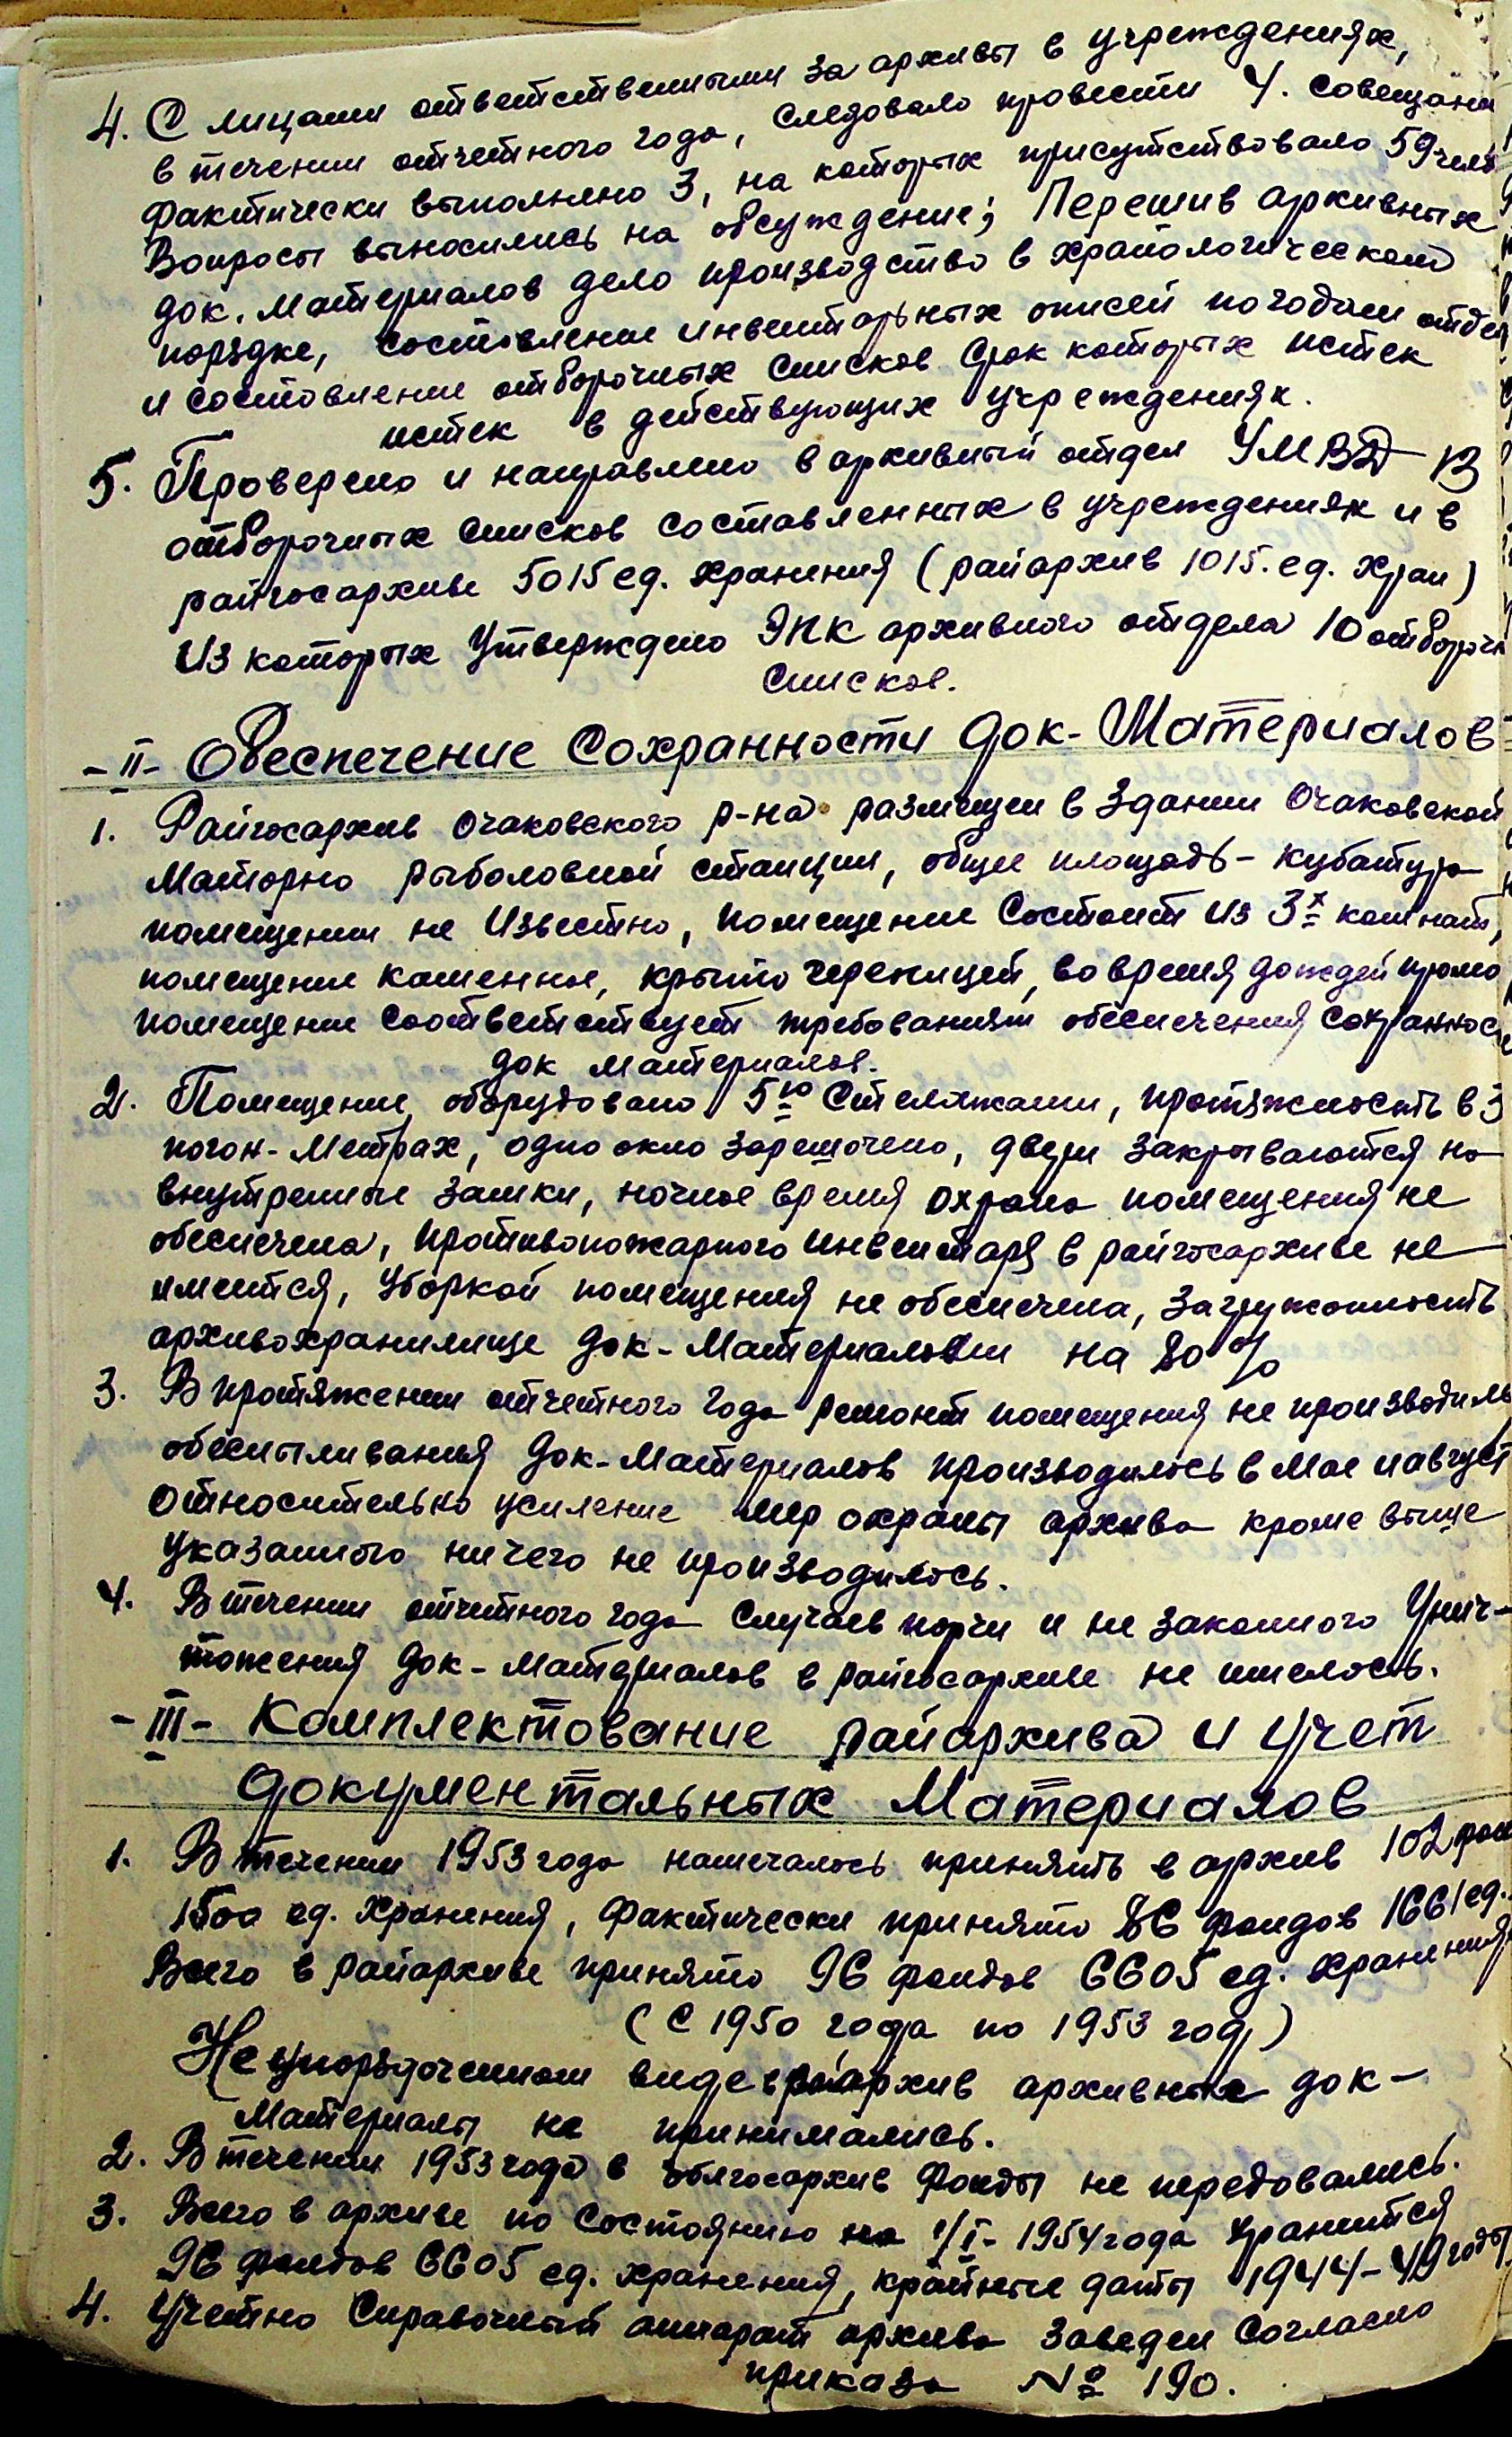 4. С лицами ответственными за архивы в учреждениях,
в течении отчетного года, следовало провести 4. Совещани
фактически выполнено 3, на которых присутствовало 59 чел
Вопросы выносились на обсуждение; Перешив архивных
док. Материалов дело производство в храпологическом
порядке, составление инвентарьных описей по годам отдел
и составлении отборочных списков срок которых истек
истек в действующих учреждениях.
5. Проверено и направлено в архивный отдел УМВД 13
отборочных списков составленных в учреждениях и в
райгосархиве 5015 ед. хранения (райархив 1015. ед. хран)
Из которых Утверждено ЭПК архивного отдела 10 отбороч
списков.
- II - Обеспечение Сохранности док- Материалов
1. Райгосархив Очаковского р-на размещен в Здании Очаковской
Маторно рыболовной станции, общее площадь - кубатура
помещении не Известно, помещение Состоит Из 3х комнат,
помещение каменное, крыто черепицей, во время дождей
помещение Соответствует требованиям обеспечения сохраннос
док материалов.
2. Помещение оборудовано 5ю Стелажами, протяжность в 3
погон- Метрах, одно окно зарешочено, двери закрываются на
внутренные замки, ночное время охрана помещения не
обеспечена, противопожарного инвентаря в райгосархиве не
имеится, Уборкой помещения не обеспечена, загружонность
архивохранилище док- Материалами на 80%
3. В протяжении отчетного года ремонт помещения не производиль
обеспыливания док- Материалов производилось в Мае и август
относительно усиление мер охраны архива кроме выше
указанного ничего не производилось.
4. В течении отчетного года Случаев порчи и не законного Унич-
тожения док- Материалов в райгосархиве не имелось.
- III - Комплектование райархива и Учет
документальных Материалов
1. В течении 1953 года намечалось принять в архив 102 фон
1500 ед. Хранения, Фактически принято 86 фондов 1661 ед.
Всего в райархиве принято 96 фондов 6605 ед. хранения
(С 1950 года по 1953 год)
Неупорядоченном виде в райархив архивные док-
Материалы не принимались.
2. В течении 1953 года в облгосархив Фонды не передовались.
3. Всего в архиве по Состоянию на 1/I- 1954 года хранится
96 фондов 6605 ед. хранения, крайные даты 1944-49 годы
4. Учетно Справочный аппарат архива заведен Согласно
приказа № 190.